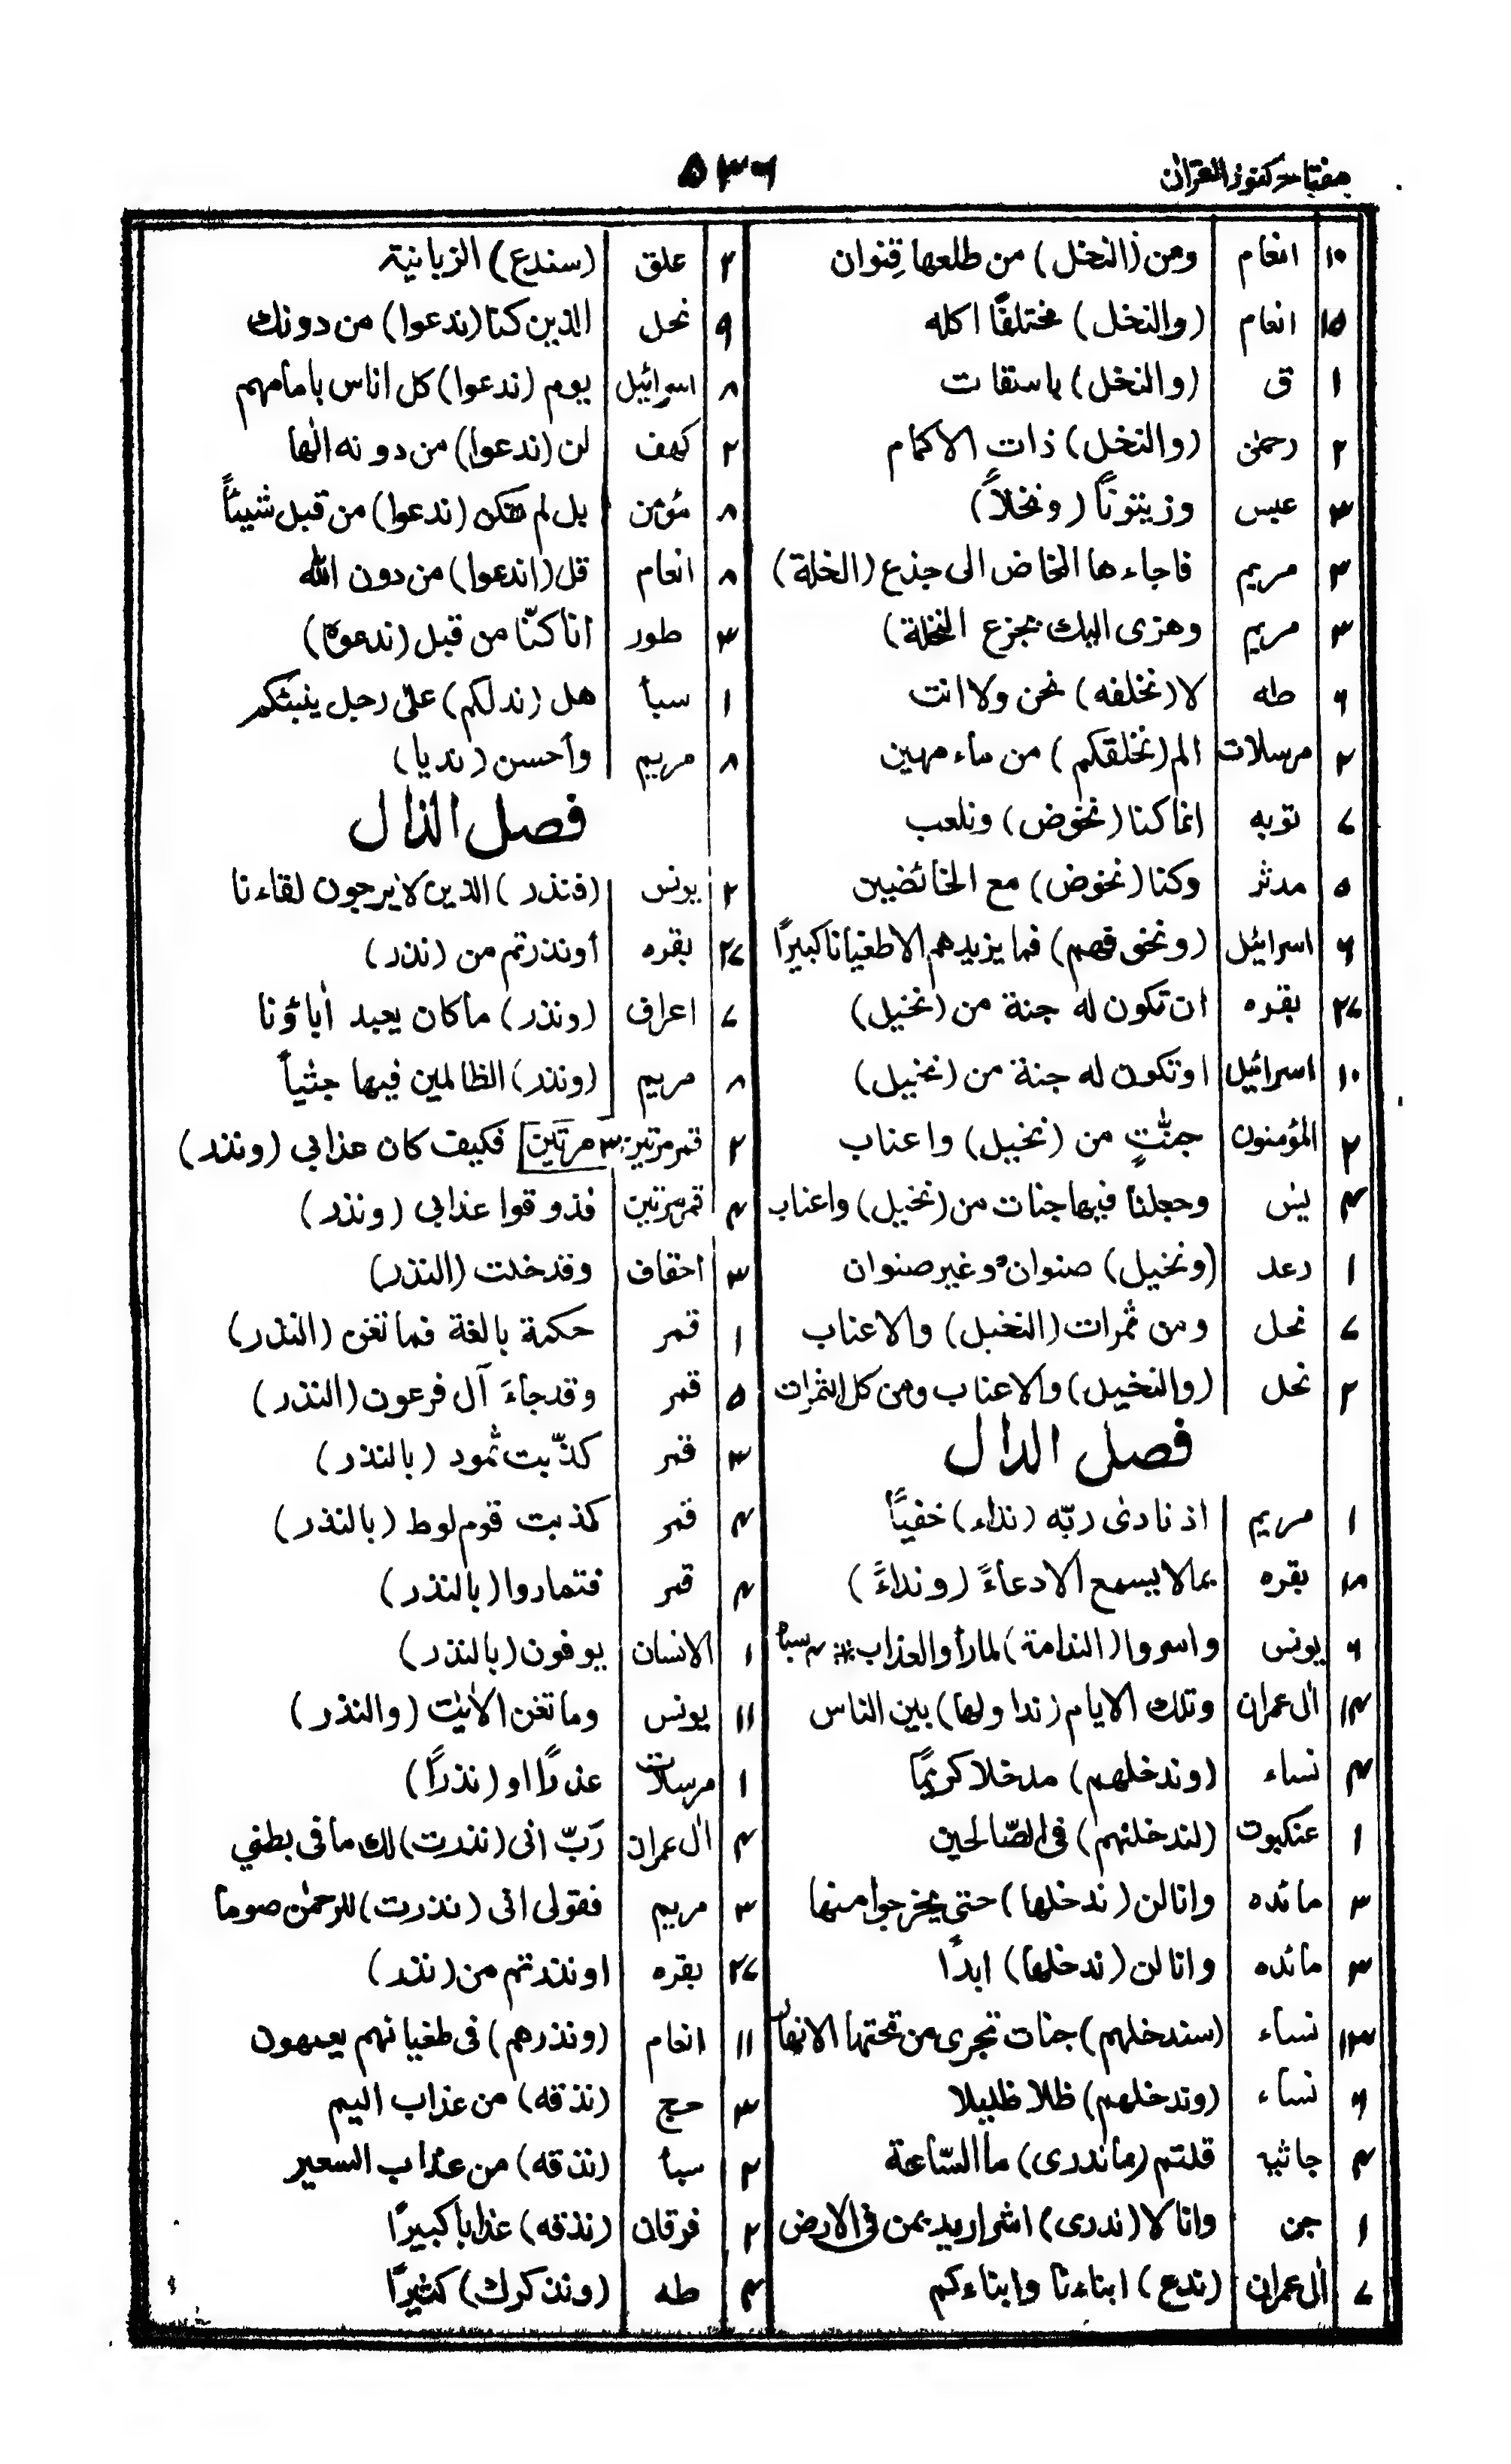 مفتاح كنوز القران
۵۳۶
۱۰ انعام ومن (النخل) من طلعها قِنوان
۱۵ انعام (والنخل) مختلفًا اكله
۱ ق (والنخل) باسقات
۲ رحمٰن (والنخل) ذات الاكمام
۳ عبس وزيتونًا (ونخلاً)
۳ مريم فاجاءها المخاض الى جذع (النخلة)
۳ مريم وهزى اليك بجزع النخلة)
۶ طه لا (نخلفه) نحن ولا انت
۲ مرسلات الم (نخلقكم) من ماء مهين
۷ توبه انما كنا (نخوض) ونلعب
۵ مدثر وكنا (نخوض) مع الخائضين
۶ اسرائيل (ونخوفهم) فما يزيدهم الا طغيانا كبيرًا
۲۷ بقره ان تكون له جنة من (نخيل)
۱۰ اسرائيل او تكون له جنة من (نخيل)
۲ المؤمنون جنّٰتٍ من (نخيل) واعناب
۴ يٰس وجعلنا فيها جنات من (نخيل) واعناب
۱ رعد (ونخيل) صنوان وغير صنوان
۷ نحل ومن ثمرات (النخيل) والاعناب
۲ نحل (والنخيل) والاعناب ومن كل الثمرات
فصل الدال
۱ مريم اذ نادىٰ ربّه (نداء) خفيًّا
۱۸ بقره بما لا يسمع الا دعاءً (ونداءً)
۶ يونس واسروا (الندامة) لما رأوا العذاب ۴ سبأ
۱۴ اٰل عمران وتلك الايام (نداولها) بين الناس
۴ نساء (وندخلهم) مدخلا كريمًا
۱ عنكبوت (لندخلنهم) فى الصّالحين
۳ مائده وانا لن (ندخلها) حتى يخرجوا منها
۳ مائده وانا لن (ندخلها) ابدًا
۱۳ نساء (سندخلهم) جنات تجرى من تحتها الانهار
۶ نساء (وندخلهم) ظلا ظليلا
۴ جاثيه قلتم (ما ندرى) ما السّاعة
۱ جن وانا لا (ندرى) اشر اريد بمن فى الارض
۷ اٰل عمران (ندع) ابناءنا وابناءكم
۲ علق (سندع) الزبانية
۹ نحل الذين كنا (ندعوا) من دونك
۸ اسرائيل يوم (ندعوا) كل اناس بامامهم
۲ كهف لن (ندعوا) من دونه الٰها
۸ مؤمن بل لم نكن (ندعوا) من قبل شيئاً
۸ انعام قل (اندعوا) من دون الله
۳ طور انا كنّا من قبل (ندعوه)
۱ سبأ هل (ندلكم) علىٰ رجل ينبئكم
۸ مريم وأحسن (نديا)
فصل الذال
۲ يونس (فنذر) الذين لا يرجون لقاءنا
۲۷ بقره أونذرتم من (نذر)
۷ اعراف (ونذر) ما كان يعبد اٰباؤنا
۸ مريم (ونذر) الظالمين فيها جثياً
۲ قمر مرتين ۳ مرتين فكيف كان عذابي (ونذر)
۴ قمر مرتين فذوقوا عذابى (ونذر)
۳ احقاف وقد خلت (النذر)
۱ قمر حكمة بالغة فما تغن (النذر)
۵ قمر وقد جاءَ آل فرعون (النذر)
۳ قمر كذّبت ثمود (بالنذر)
۴ قمر كذبت قوم لوط (بالنذر)
۴ قمر فتماروا (بالنذر)
۱ الانسان يوفون (بالنذر)
۱۱ يونس وما تغن الاٰيٰت (والنذر)
۱ مرسلات عذرًا او (نذرًا)
۴ اٰل عمران رَبّ انى (نذرت) لك ما فى بطني
۳ مريم فقولى انى (نذرت) للرحمٰن صوما
۲۷ بقره او نذرتم من (نذر)
۱۱ انعام (ونذرهم) فى طغيانهم يعمهون
۳ حج (نذقه) من عذاب اليم
۲ سبأ (نذقه) من عذاب السعير
۲ فرقان (نذقه) عذابا كبيرًا
۴ طه (ونذكرك) كثيرًا